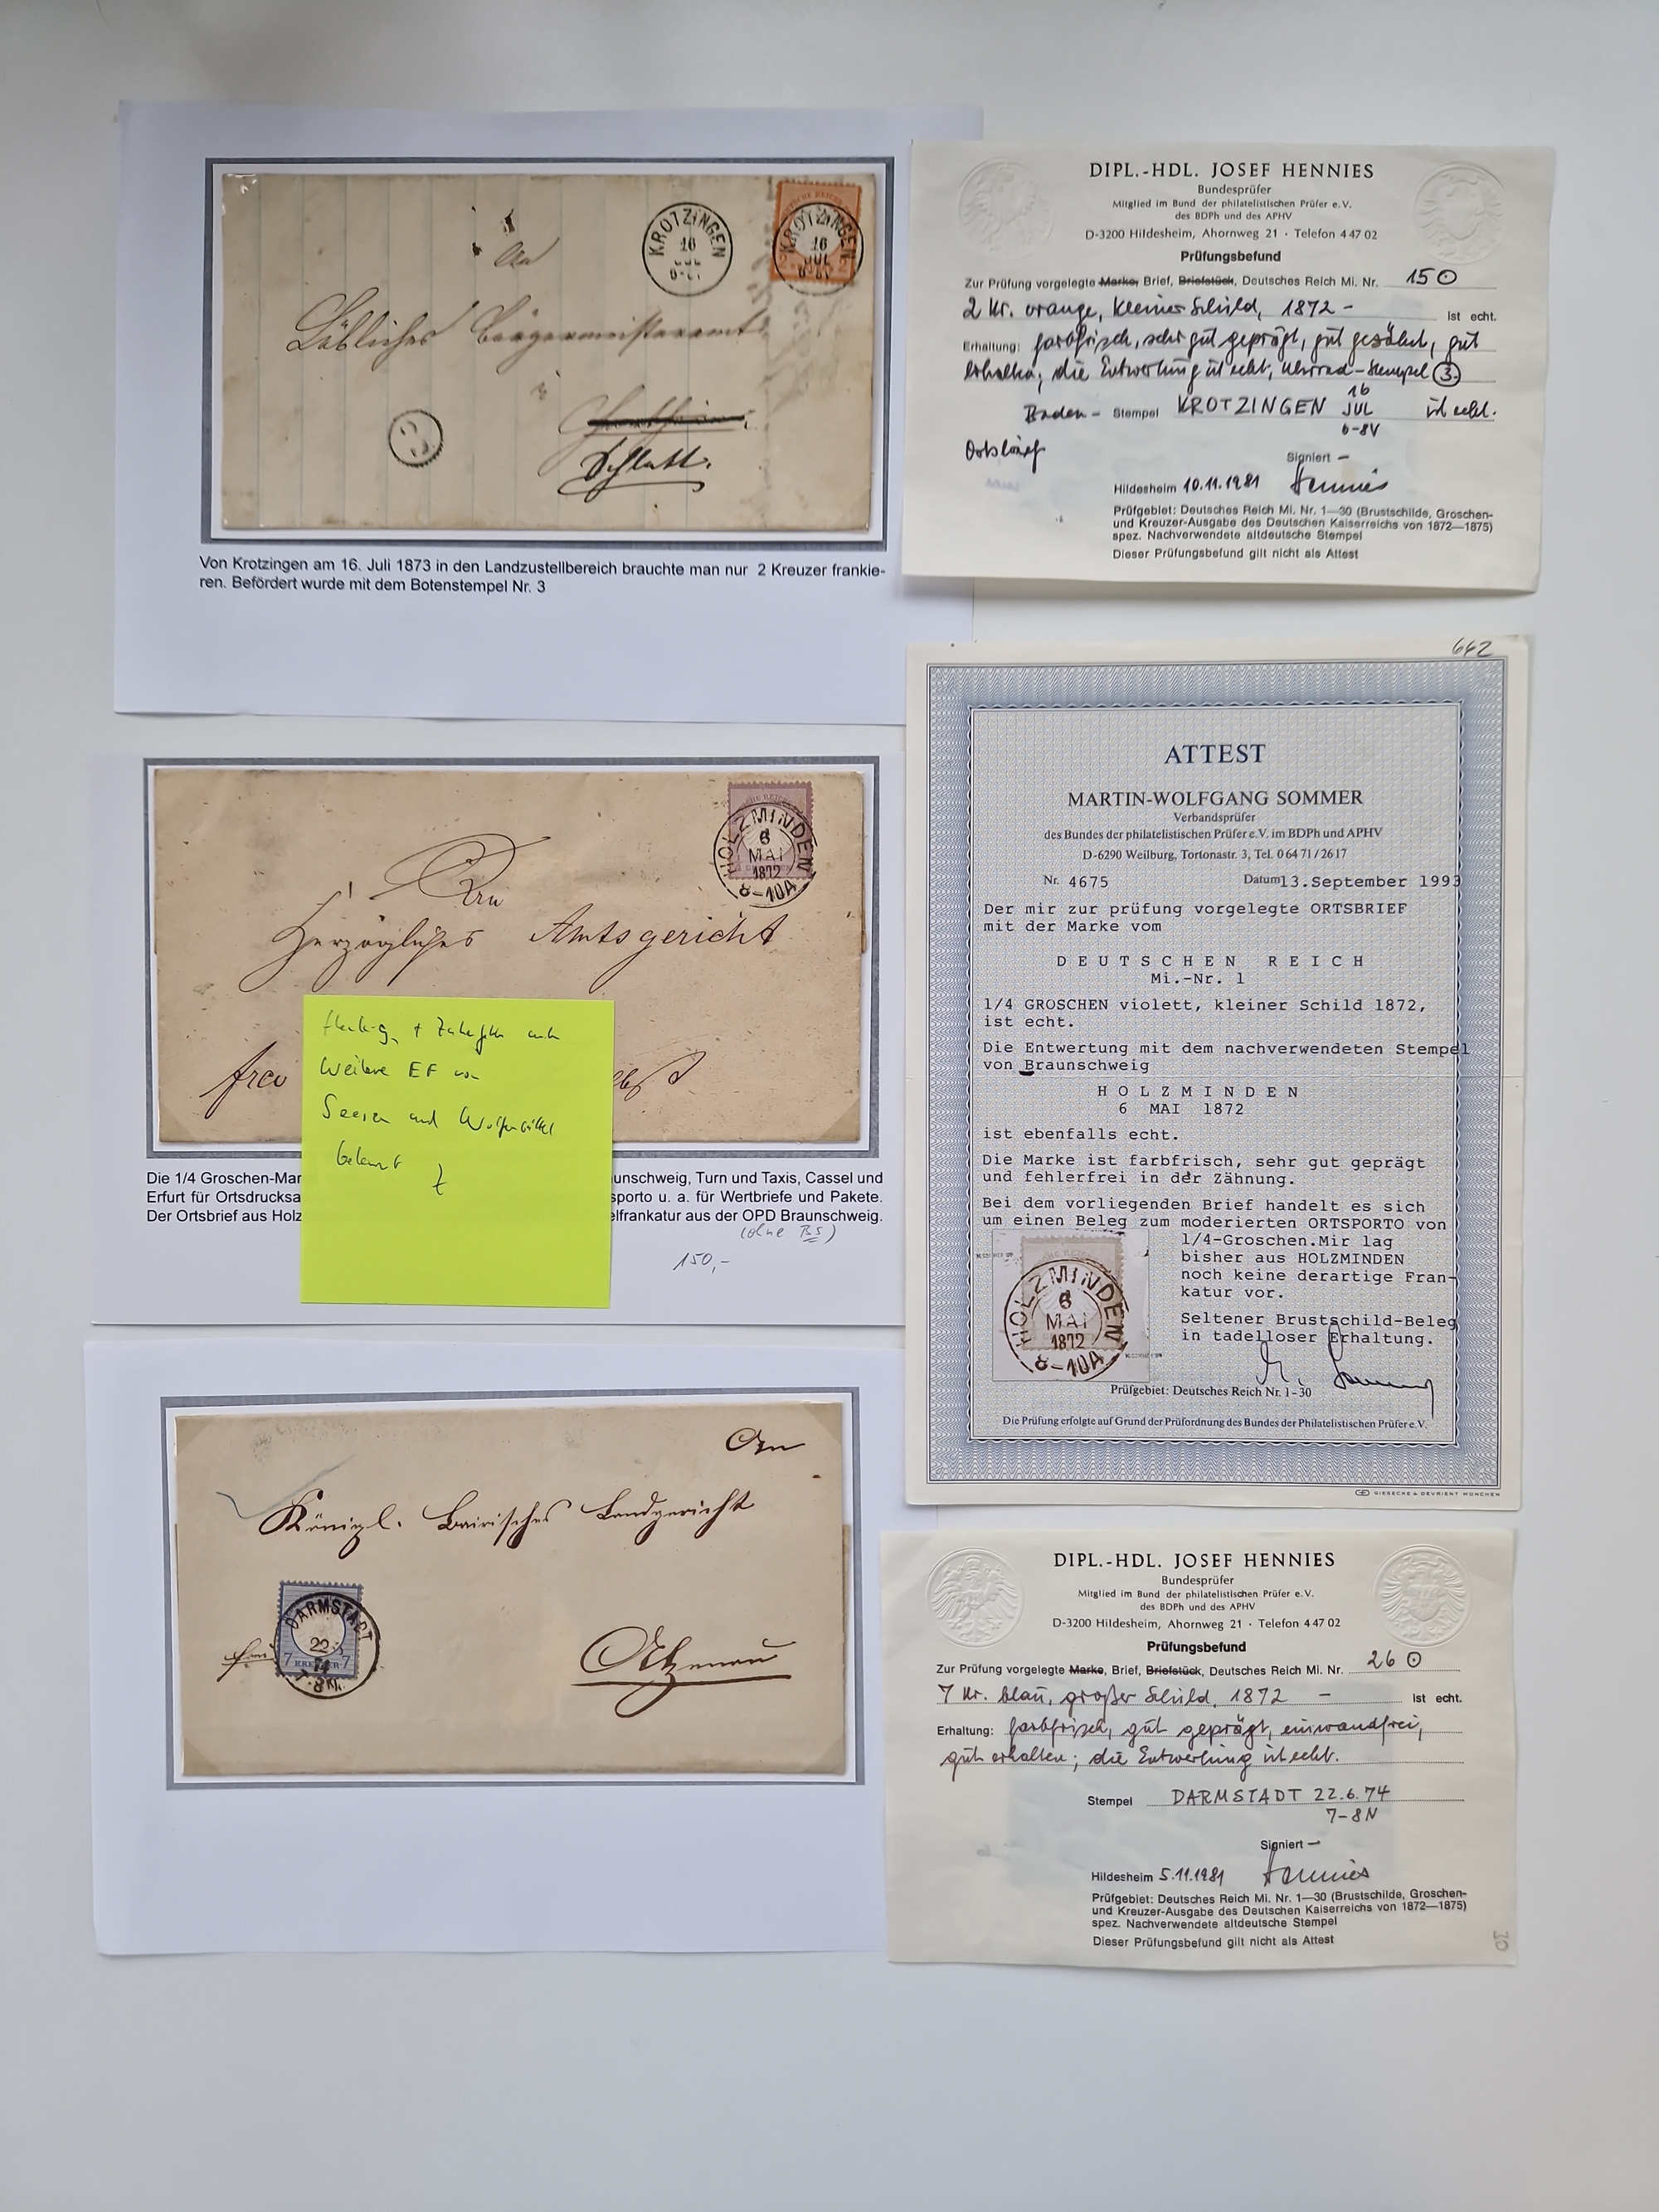 KROTZINGEN
16
JUL
KROTZINGEN
16
JUL
An
Löbliches Bürgermeisteramt
Schlatt.
Von Krotzingen am 16. Juli 1873 in den Landzustellbereich brauchte man nur 2 Kreuzer frankie-
ren. Befördert wurde mit dem Botenstempel Nr. 3
DIPL.-HDL. JOSEF HENNIES
Bundesprüfer
Mitglied im Bund der philatelistischen Prüfer e.V.
des BDPh und des APHV
D-3200 Hildesheim, Ahornweg 21 · Telefon 4 47 02
Prüfungsbefund
Zur Prüfung vorgelegte Marke, Brief, Briefstück, Deutsches Reich Mi. Nr. 15 ⊙
2 Kr. orange, kleiner Schild, 1872 – ist echt.
Erhaltung: farbfrisch, sehr gut geprägt, gut gezähnt, gut
erhalten; die Entwertung ist echt, Uhrrad-Stempel 3.
Baden- Stempel KROTZINGEN 16 JUL 6-8V ist echt.
Ortsbrief
Signiert –
Hildesheim 10.11.1981 Hennies
Prüfgebiet: Deutsches Reich Mi. Nr. 1—30 (Brustschilde, Groschen-
und Kreuzer-Ausgabe des Deutschen Kaiserreichs von 1872—1875)
spez. Nachverwendete altdeutsche Stempel
Dieser Prüfungsbefund gilt nicht als Attest
HOLZMINDEN
6
MAI
1872
8-10A
An
Herzogliches Amtsgericht
frei
Weitere EF von
Seesen und Wolfenbüttel
bekannt
Die 1/4 Groschen-Mar
unschweig, Turn und Taxis, Cassel und
Erfurt für Ortsdrucksa
sporto u. a. für Wertbriefe und Pakete.
Der Ortsbrief aus Holz
elfrankatur aus der OPD Braunschweig.
(ohne BS)
150,-
662
ATTEST
MARTIN-WOLFGANG SOMMER
Verbandsprüfer
des Bundes der philatelistischen Prüfer e.V. im BDPh und APHV
D-6290 Weilburg, Tortonastr. 3, Tel. 0 64 71 / 26 17
Nr. 4675 Datum 13.September 1993
Der mir zur prüfung vorgelegte ORTSBRIEF
mit der Marke vom
DEUTSCHEN REICH
Mi.-Nr. 1
1/4 GROSCHEN violett, kleiner Schild 1872,
ist echt.
Die Entwertung mit dem nachverwendeten Stempel
von Braunschweig
HOLZMINDEN
6 MAI 1872
ist ebenfalls echt.
Die Marke ist farbfrisch, sehr gut geprägt
und fehlerfrei in der Zähnung.
Bei dem vorliegenden Brief handelt es sich
um einen Beleg zum moderierten ORTSPORTO von
1/4-Groschen.Mir lag
bisher aus HOLZMINDEN
noch keine derartige Fran-
katur vor.
Seltener Brustschild-Beleg
in tadelloser Erhaltung.
HOLZMINDEN
6
MAI
1872
8-10A
Prüfgebiet: Deutsches Reich Nr. 1-30
Die Prüfung erfolgte auf Grund der Prüfordnung des Bundes der Philatelistischen Prüfer e.V.
GIESECKE & DEVRIENT MÜNCHEN
An
Königl. Bairisches Landgericht
DARMSTADT
22
7 KREUZER 7
Alzenau
DIPL.-HDL. JOSEF HENNIES
Bundesprüfer
Mitglied im Bund der philatelistischen Prüfer e.V.
des BDPh und des APHV
D-3200 Hildesheim, Ahornweg 21 · Telefon 4 47 02
Prüfungsbefund
Zur Prüfung vorgelegte Marke, Brief, Briefstück, Deutsches Reich Mi. Nr. 26 ⊙
7 Kr. blau, großer Schild, 1872 – ist echt.
Erhaltung: farbfrisch, gut geprägt, einwandfrei,
gut erhalten; die Entwertung ist echt.
Stempel DARMSTADT 22.6.74
7-8N
Signiert –
Hildesheim 5.11.1981 Hennies
Prüfgebiet: Deutsches Reich Mi. Nr. 1—30 (Brustschilde, Groschen-
und Kreuzer-Ausgabe des Deutschen Kaiserreichs von 1872—1875)
spez. Nachverwendete altdeutsche Stempel
Dieser Prüfungsbefund gilt nicht als Attest
30